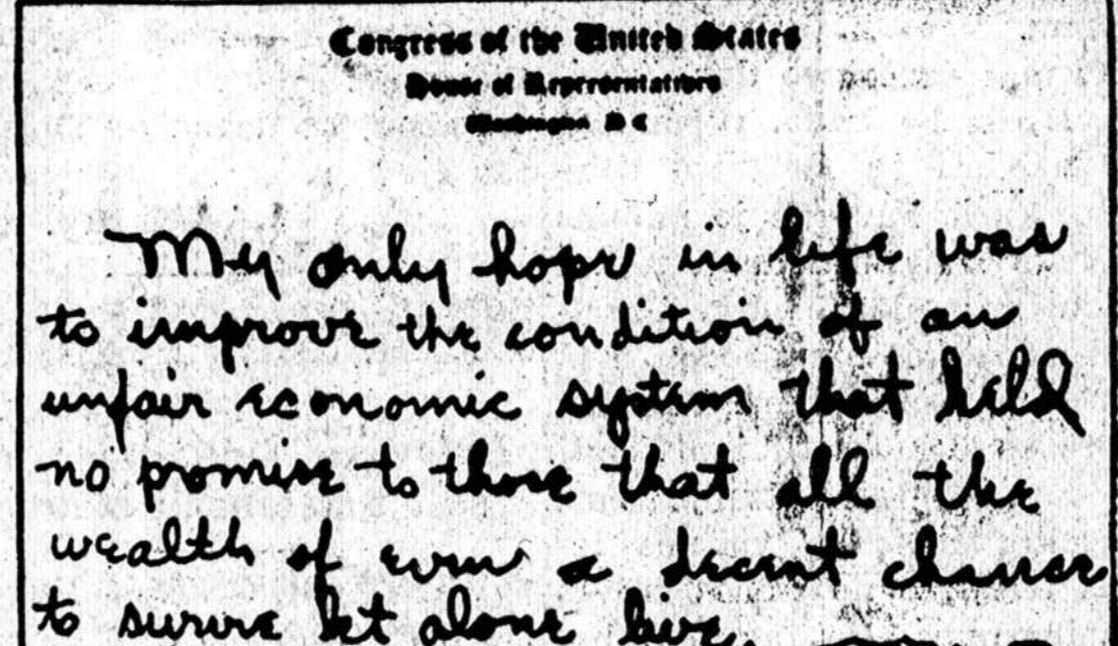 Congress of the United States
House of Representatives
Washington D C
My only hope in life was
to improve the condition of an
unfair economic system that held
no promise to those that all the
wealth of even a decent chance
to survive let alone live.